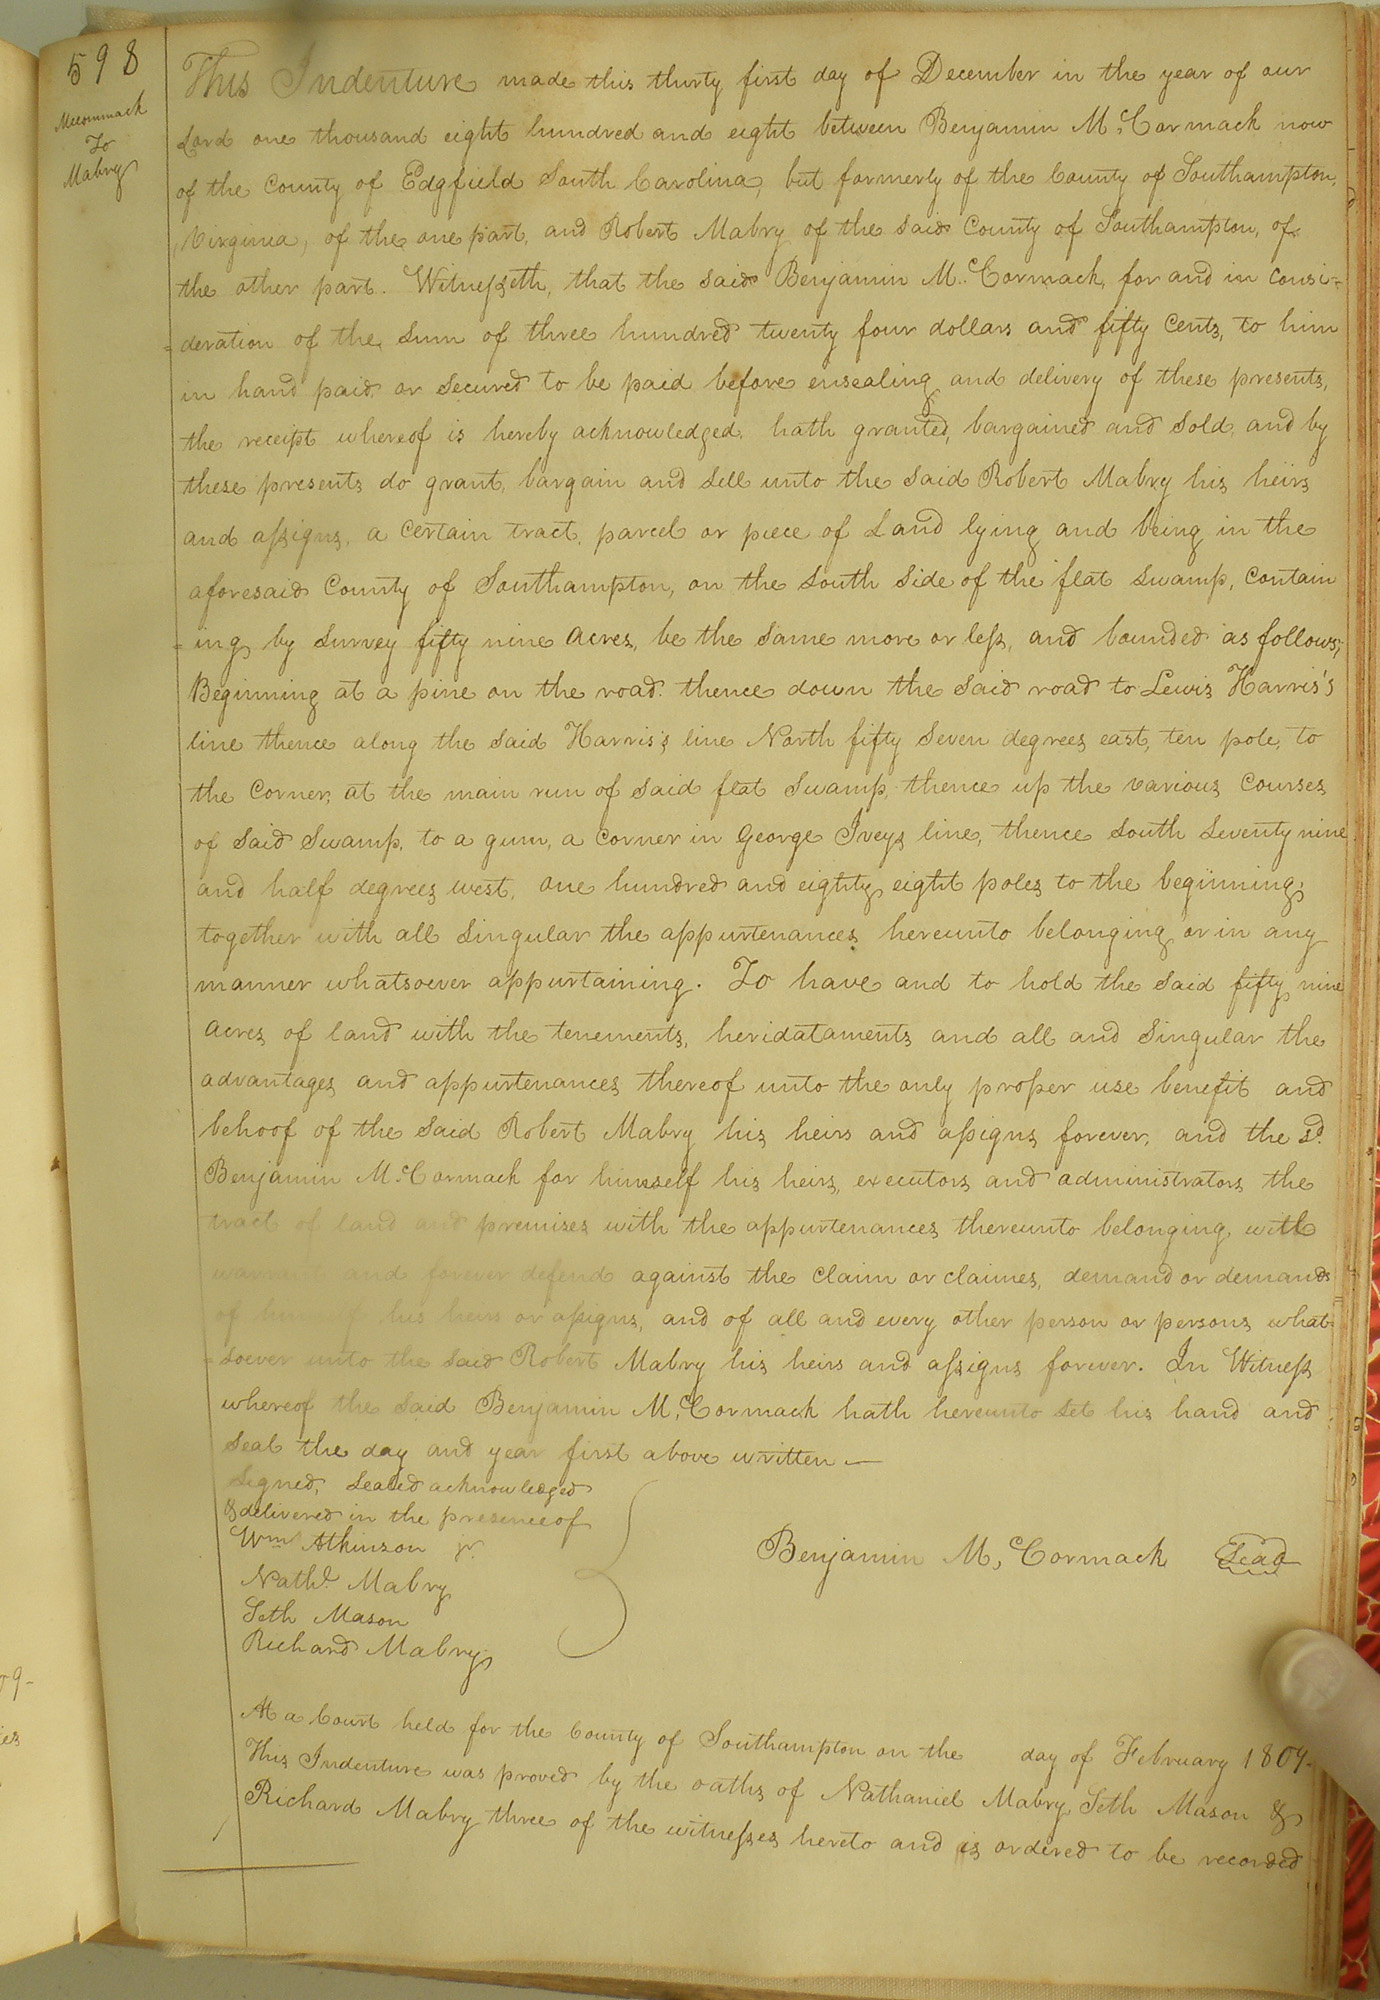 598
Mccormmack
To
Mabry
This Indenture made this thirty first day of December in the year of our
Lord one thousand eight hundred and eight between Benjamin Mc.Cormack now
of the County of Edgfield South Carolina, but formerly of the County of Southampton,
Virginia, of the one part, and Robert Mabry of the said County of Southampton, of
the other part. Witnesseth, that the said Benjamin Mc.Cormack, for and in consi=
=deration of the sum of three hundred twenty four dollars and fifty Cents, to him
in hand paid or secured to be paid before ensealing and delivery of these presents,
the receipt whereof is hereby acknowledged, hath granted, bargained and sold, and by
these presents do grant, bargain and sell unto the said Robert Mabry his heirs
and assigns, a certain tract, parcel or piece of Land lying and being in the
aforesaid County of Southampton, on the South Side of the flat swamp, contain
=ing by survey fifty nine acres, be the same more or less, and bounded as follows;
Beginning at a pine on the road. thence down the said road to Lewis Harris's
line thence along the said Harris's line North fifty seven degrees east, ten pole, to
the corner, at the main run of said flat swamp, thence up the various courses
of said swamp, to a gum, a corner in George Iveys line, thence south seventy nine
and half degrees west, one hundred and eighty eight poles to the beginning;
together with all singular the appurtenances hereunto belonging or in any
manner whatsoever appurtaining. To have and to hold the said fifty nine
acres of land with the tenements, heridataments and all and singular the
advantages and appurtenances thereof unto the only proper use benefit and
behoof of the said Robert Mabry his heirs and assigns forever, and the sd.
Benjamin Mc.Cormack for himself his heirs, executors and administrators the
tract of land and premises with the appurtenances thereunto belonging will
warrant and forever defend against the claim or claimes, demand or demands
of himself his heirs or assigns, and of all and every other person or persons what=
=soever unto the said Robert Mabry his heirs and assigns forever. In Witness
whereof the said Benjamin Mc.Cormack hath hereunto set his hand and
seal the day and year first above written —
Signed, sealed acknowledged
& delivered in the presence of
Wm Atkinson jr.
Benjamin Mc.Cormack Seal
Nathl. Mabry
Seth Mason
Richard Mabry
At a Court held for the County of Southampton on the day of February 1809.
This Indenture was proved by the oaths of Nathaniel Mabry, Seth Mason &
Richard Mabry three of the witnesses hereto and is ordered to be recorded